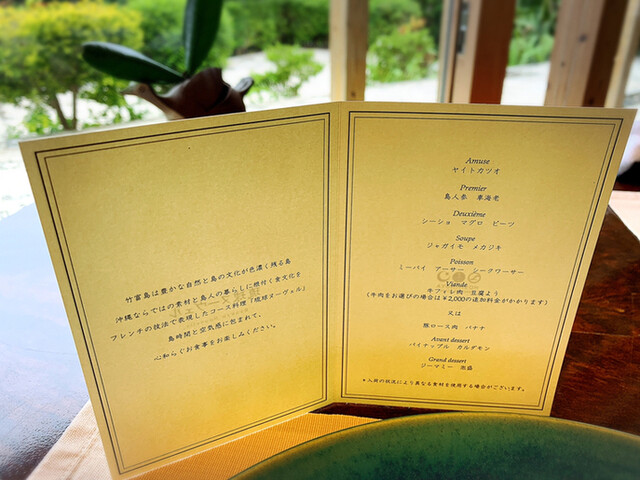 竹富島は豊かな自然と島の文化が色濃く残る島
沖縄ならではの素材と島人の暮らしに根付く食文化を
フレンチの技法で表現したコース料理「琉球ヌーヴェル」
島時間と空気感に包まれて、
心和らぐお食事をお楽しみください。
Amuse
ヤイトカツオ
Premier
島人参 車海老
Deuxième
シーショ マグロ ビーツ
Soupe
ジャガイモ メカジキ
Poisson
ミーバイ アーサー シークワーサー
Viande
牛フィレ肉 豆腐よう
(牛肉をお選びの場合は¥2,000の追加料金がかかります)
又は
豚ロース肉 バナナ
Avant dessert
パイナップル カルダモン
Grand dessert
ジーマミー 泡盛
*入荷の状況により異なる食材を使用する場合がございます。